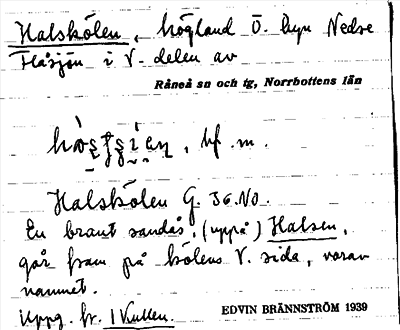 Halskölen, högland Ö. hyn Nedre
Flåsjön i V. delen av
Råneå sn och tg, Norrbottens län
bf. m.
Halskölen G. 36. NO.
En brant sandås, (uppå) Halsen,
går fram på kölens V. sida, varav
namnet.
Uppg. fr. 1 Kullen.
EDVIN BRÄNNSTRÖM 1939